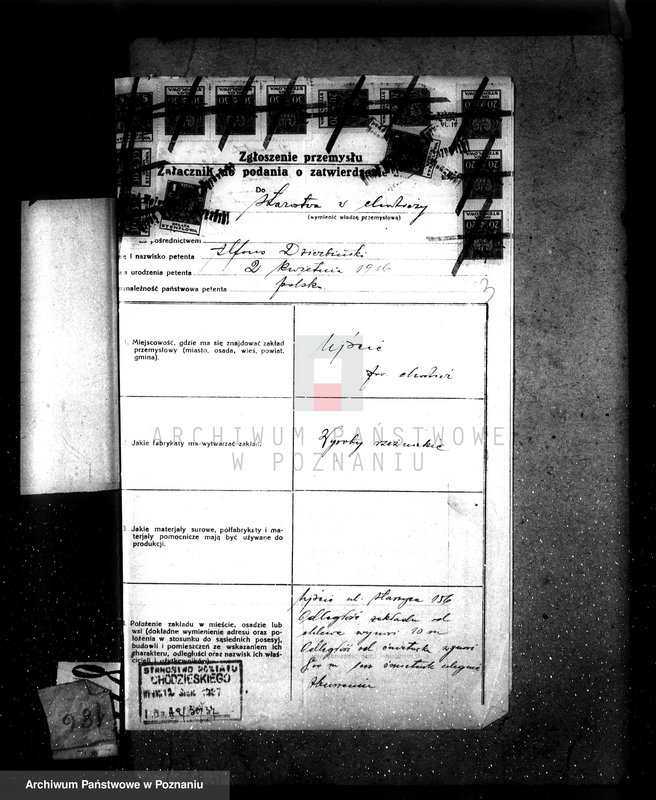 Zgłoszenie przemysłu
Załącznik do podania o zatwierdzenie
Do Starostwa w Chodzieży
(wymienić władzę przemysłową)
pośrednictwem
i nazwisko petenta Alfons Dzierbiński
urodzenia petenta 2 kwietnia 1916
państwowa petenta polska
3
1. Miejscowość, gdzie ma się znajdować zakład
przemysłowy (miasto, osada, wieś, powiat,
gmina).
Ujście
pow. Chodzież
Jakie fabrykaty ma wytwarzać zakład.
Wyroby rzeźnickie
3. Jakie materjały surowe, półfabrykaty i ma-
terjały pomocnicze mają być używane do
produkcji.
4. Położenie zakładu w mieście, osadzie lub
wsi (dokładne wymienienie adresu oraz po-
łożenia w stosunku do sąsiednich posesyj,
budowli i pomieszczeń ze wskazaniem ich
charakteru, odległości oraz nazwisk ich właś-
cicieli i użytkowników).
Ujście ul.
Odległość zakładu od
chlewa wynosi 10 m
Odległość od śmietnika wynosi
STAROSTWO POWIATU
CHODZIESKIEGO
ARCHIWUM PAŃSTWOWE
W POZNANIU
Archiwum Państwowe w Poznaniu